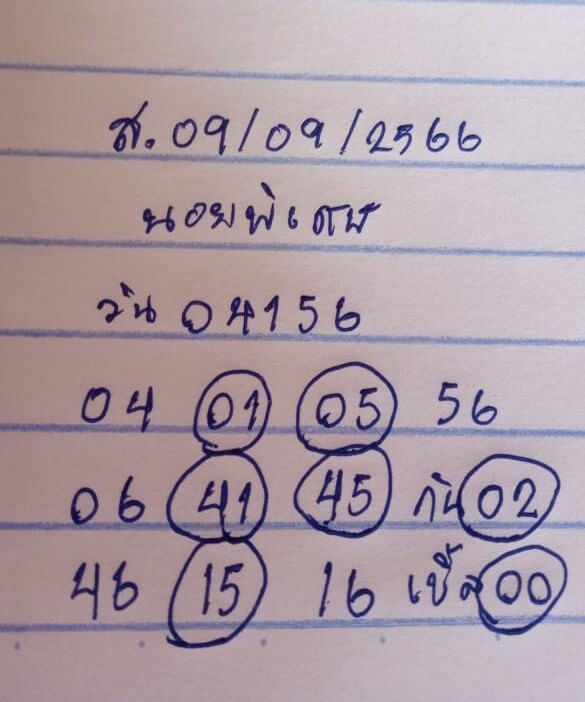 ส. 09/09/2566
นอยพิเศษ
วิน 04156
04 01 05 56
06 41 45 กัน 02
46 15 16 เบิ้ล 00